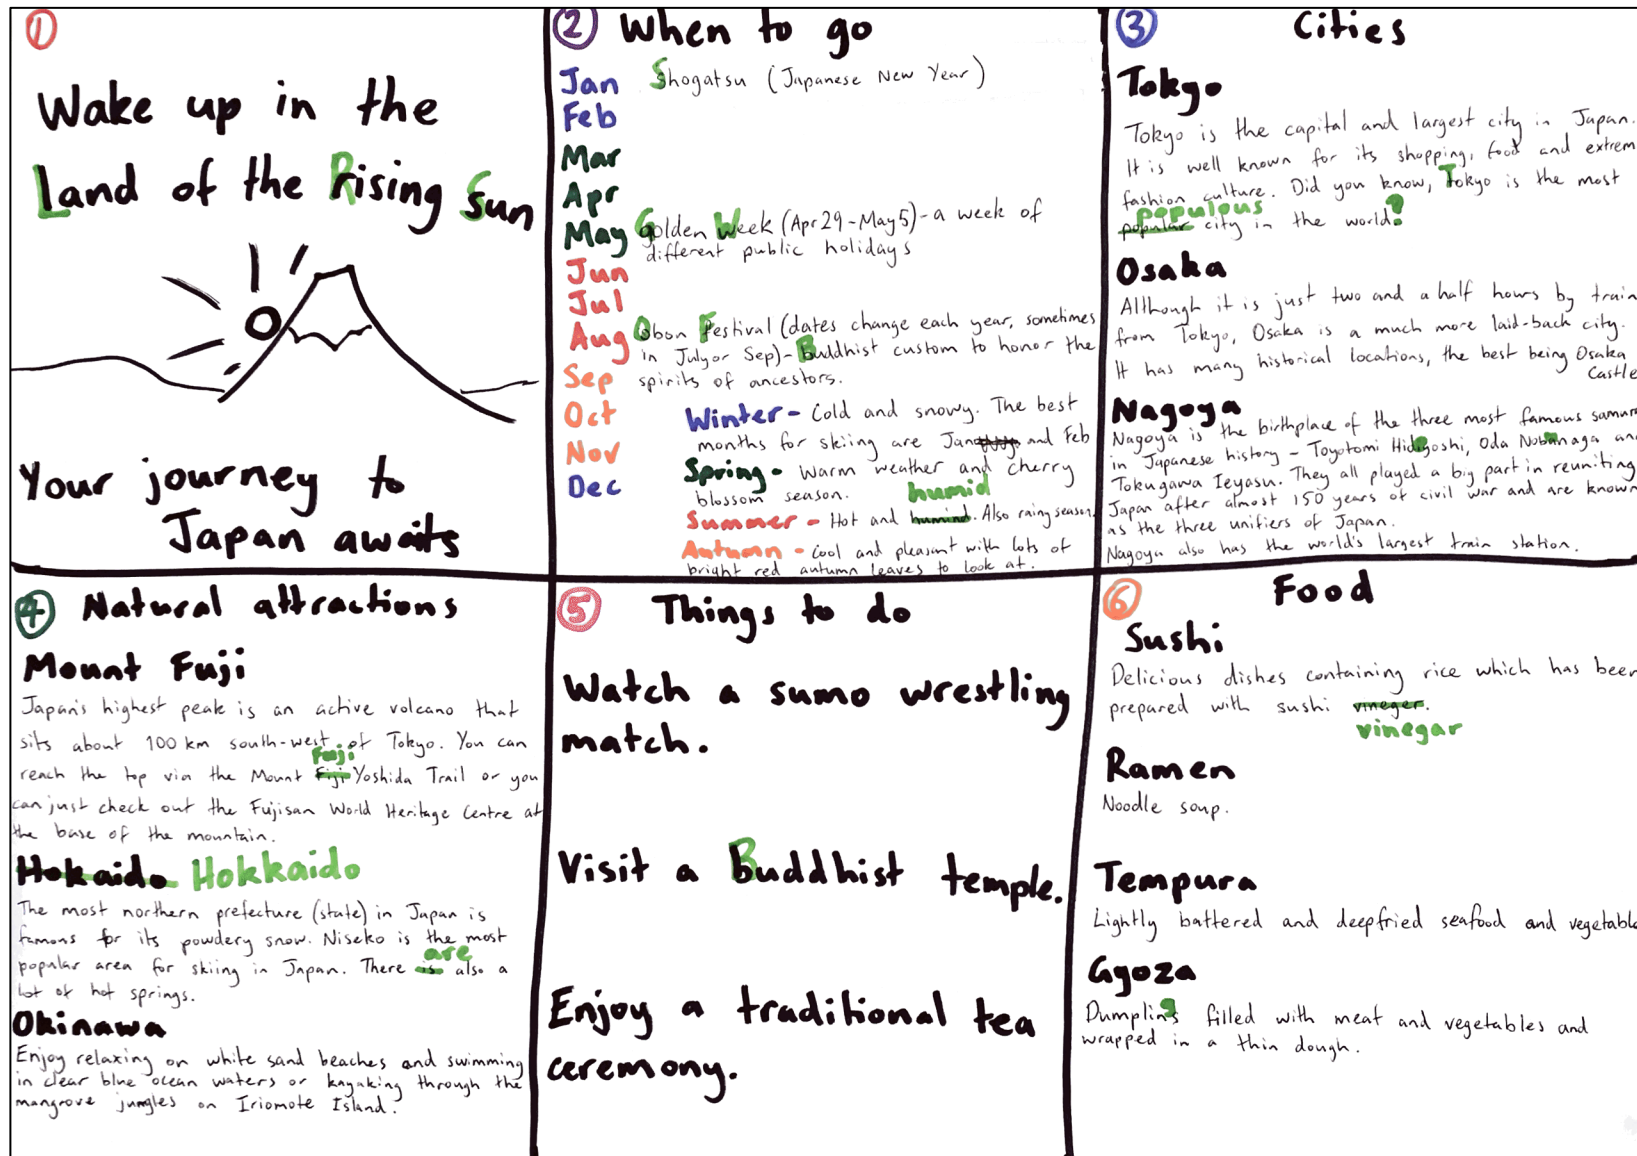 1
Wake up in the
Land of the Rising Sun
Your journey to
Japan awaits
2 When to go
Jan Shogatsu (Japanese New Year)
Feb
Mar
Apr
May Golden Week (Apr 29 - May 5) - a week of
different public holidays
Jun
Jul
Aug Obon Festival (dates change each year, sometimes
in July or Sep) - Buddhist custom to honor the
Sep spirits of ancestors.
Oct
Nov
Dec
Winter - Cold and snowy. The best
months for skiing are Jan and Feb
Spring - Warm weather and cherry
blossom season.
humid
Summer - Hot and humind. Also rainy season.
Autumn - Cool and pleasant with lots of
bright red autumn leaves to look at.
3 Cities
Tokyo
Tokyo is the capital and largest city in Japan.
It is well known for its shopping, food and extrem
fashion culture. Did you know, Tokyo is the most
populous
popular city in the world?
Osaka
Although it is just two and a half hours by train
from Tokyo, Osaka is a much more laid-back city.
It has many historical locations, the best being Osaka
Castle
Nagoya
Nagoya is the birthplace of the three most famous samura
in Japanese history - Toyotomi Hideyoshi, Oda Nobunaga an
Tokugawa Ieyasu. They all played a big part in reuniting
Japan after almost 150 years of civil war and are known
as the three unifiers of Japan.
Nagoya also has the world's largest train station.
4 Natural attractions
Mount Fuji
Japan's highest peak is an active volcano that
sits about 100 km south-west of Tokyo. You can
Fuji
reach the top via the Mount Fiji Yoshida Trail or you
can just check out the Fujisan World Heritage Centre at
the base of the mountain.
Hokaido Hokkaido
The most northern prefecture (state) in Japan is
famous for its powdery snow. Niseko is the most
are
popular area for skiing in Japan. There is also a
lot of hot springs.
Okinawa
Enjoy relaxing on white sand beaches and swimming
in clear blue ocean waters or kayaking through the
mangrove jungles on Iriomote Island.
5 Things to do
Watch a sumo wrestling
match.
Visit a Buddhist temple.
Enjoy a traditional tea
ceremony.
6 Food
Sushi
Delicious dishes containing rice which has been
prepared with sushi vineger.
vinegar
Ramen
Noodle soup.
Tempura
Lightly battered and deepfried seafood and vegetable
Gyoza
Dumplings filled with meat and vegetables and
wrapped in a thin dough.